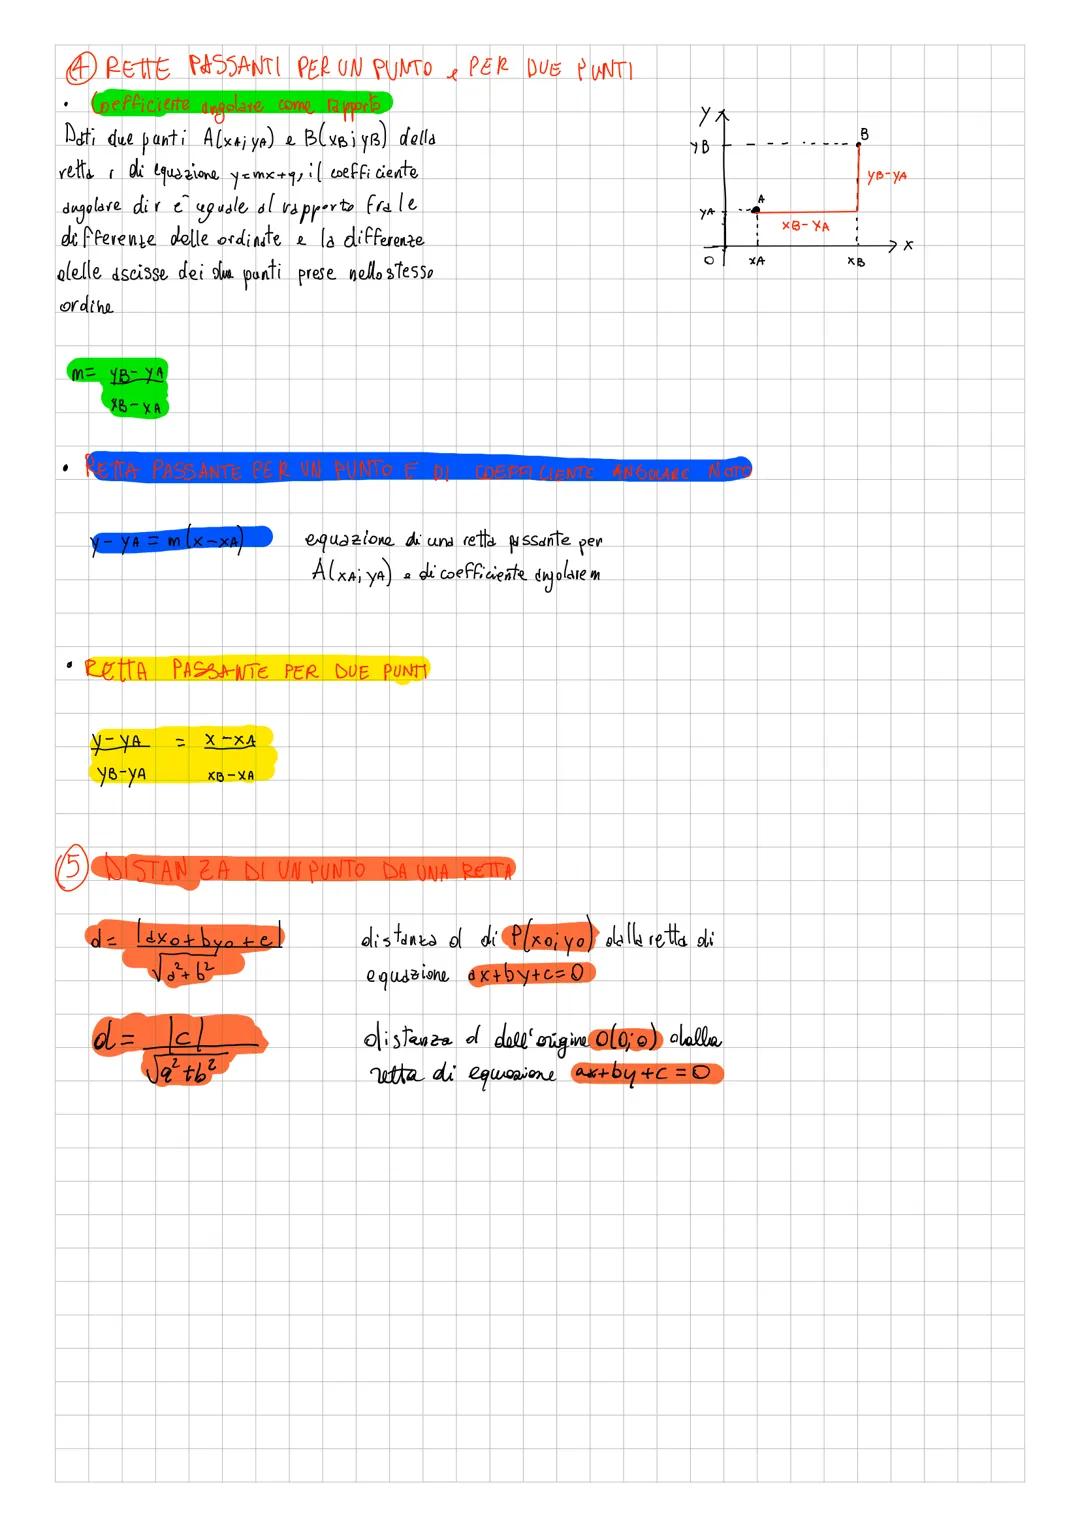 4 RETTE PASSANTI PER UN PUNTO e PER DUE PUNTI
• Coefficiente angolare come rapporto
Dati due punti A(xA; yA) e B(xB; yB) della
retta r di equazione y=mx+q, il coefficiente
angolare di r è uguale al rapporto fra le
differenze delle ordinate e la differenze
delle ascisse dei due punti prese nello stesso
ordine
y
yB
B
yB-yA
yA
A
xB-xA
O
xA
xB
x
m= yB-yA
xB-xA
• RETTA PASSANTE PER UN PUNTO E DI COEFFICIENTE ANGOLARE NOTO
y-yA = m(x-xA)
equazione di una retta passante per
A(xA; yA) e di coefficiente angolare m
• RETTA PASSANTE PER DUE PUNTI
y-yA = x-xA
yB-yA xB-xA
5 DISTANZA DI UN PUNTO DA UNA RETTA
d= |ax0+by0+c|
√a²+b²
distanza d di P(x0; y0) dalla retta di
equazione ax+by+c=0
d= |c|
√a²+b²
distanza d dell'origine O(0;0) dalla
retta di equazione ax+by+c=0